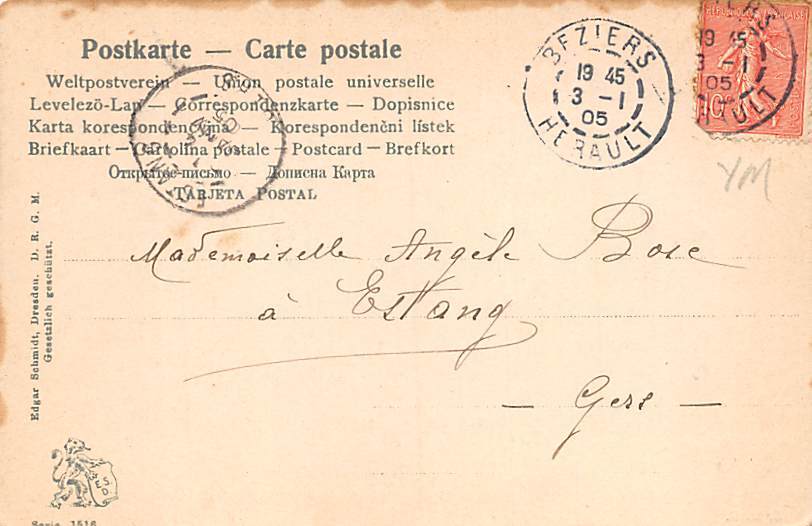 Postkarte — Carte postale
Weltpostverein — Union postale universelle
Levelezö-Lap — Correspondenzkarte — Dopisnice
Karta korespondencyjna — Korespondenčni lístek
Briefkaart — Cartolina postale — Postcard — Brefkort
Открытое письмо — Дописна Карта
TARJETA POSTAL
BEZIERS
19 45
3 - 1
05
HERAULT
REPUBLIQUE FRANÇAISE
19 45
3 - 1
05
10
YM
Mademoiselle Angèle Bosc
à Estang
— Gers —
Edgar Schmidt, Dresden. D. R. G. M.
Gesetzlich geschützt.
E S D
Serie 1516